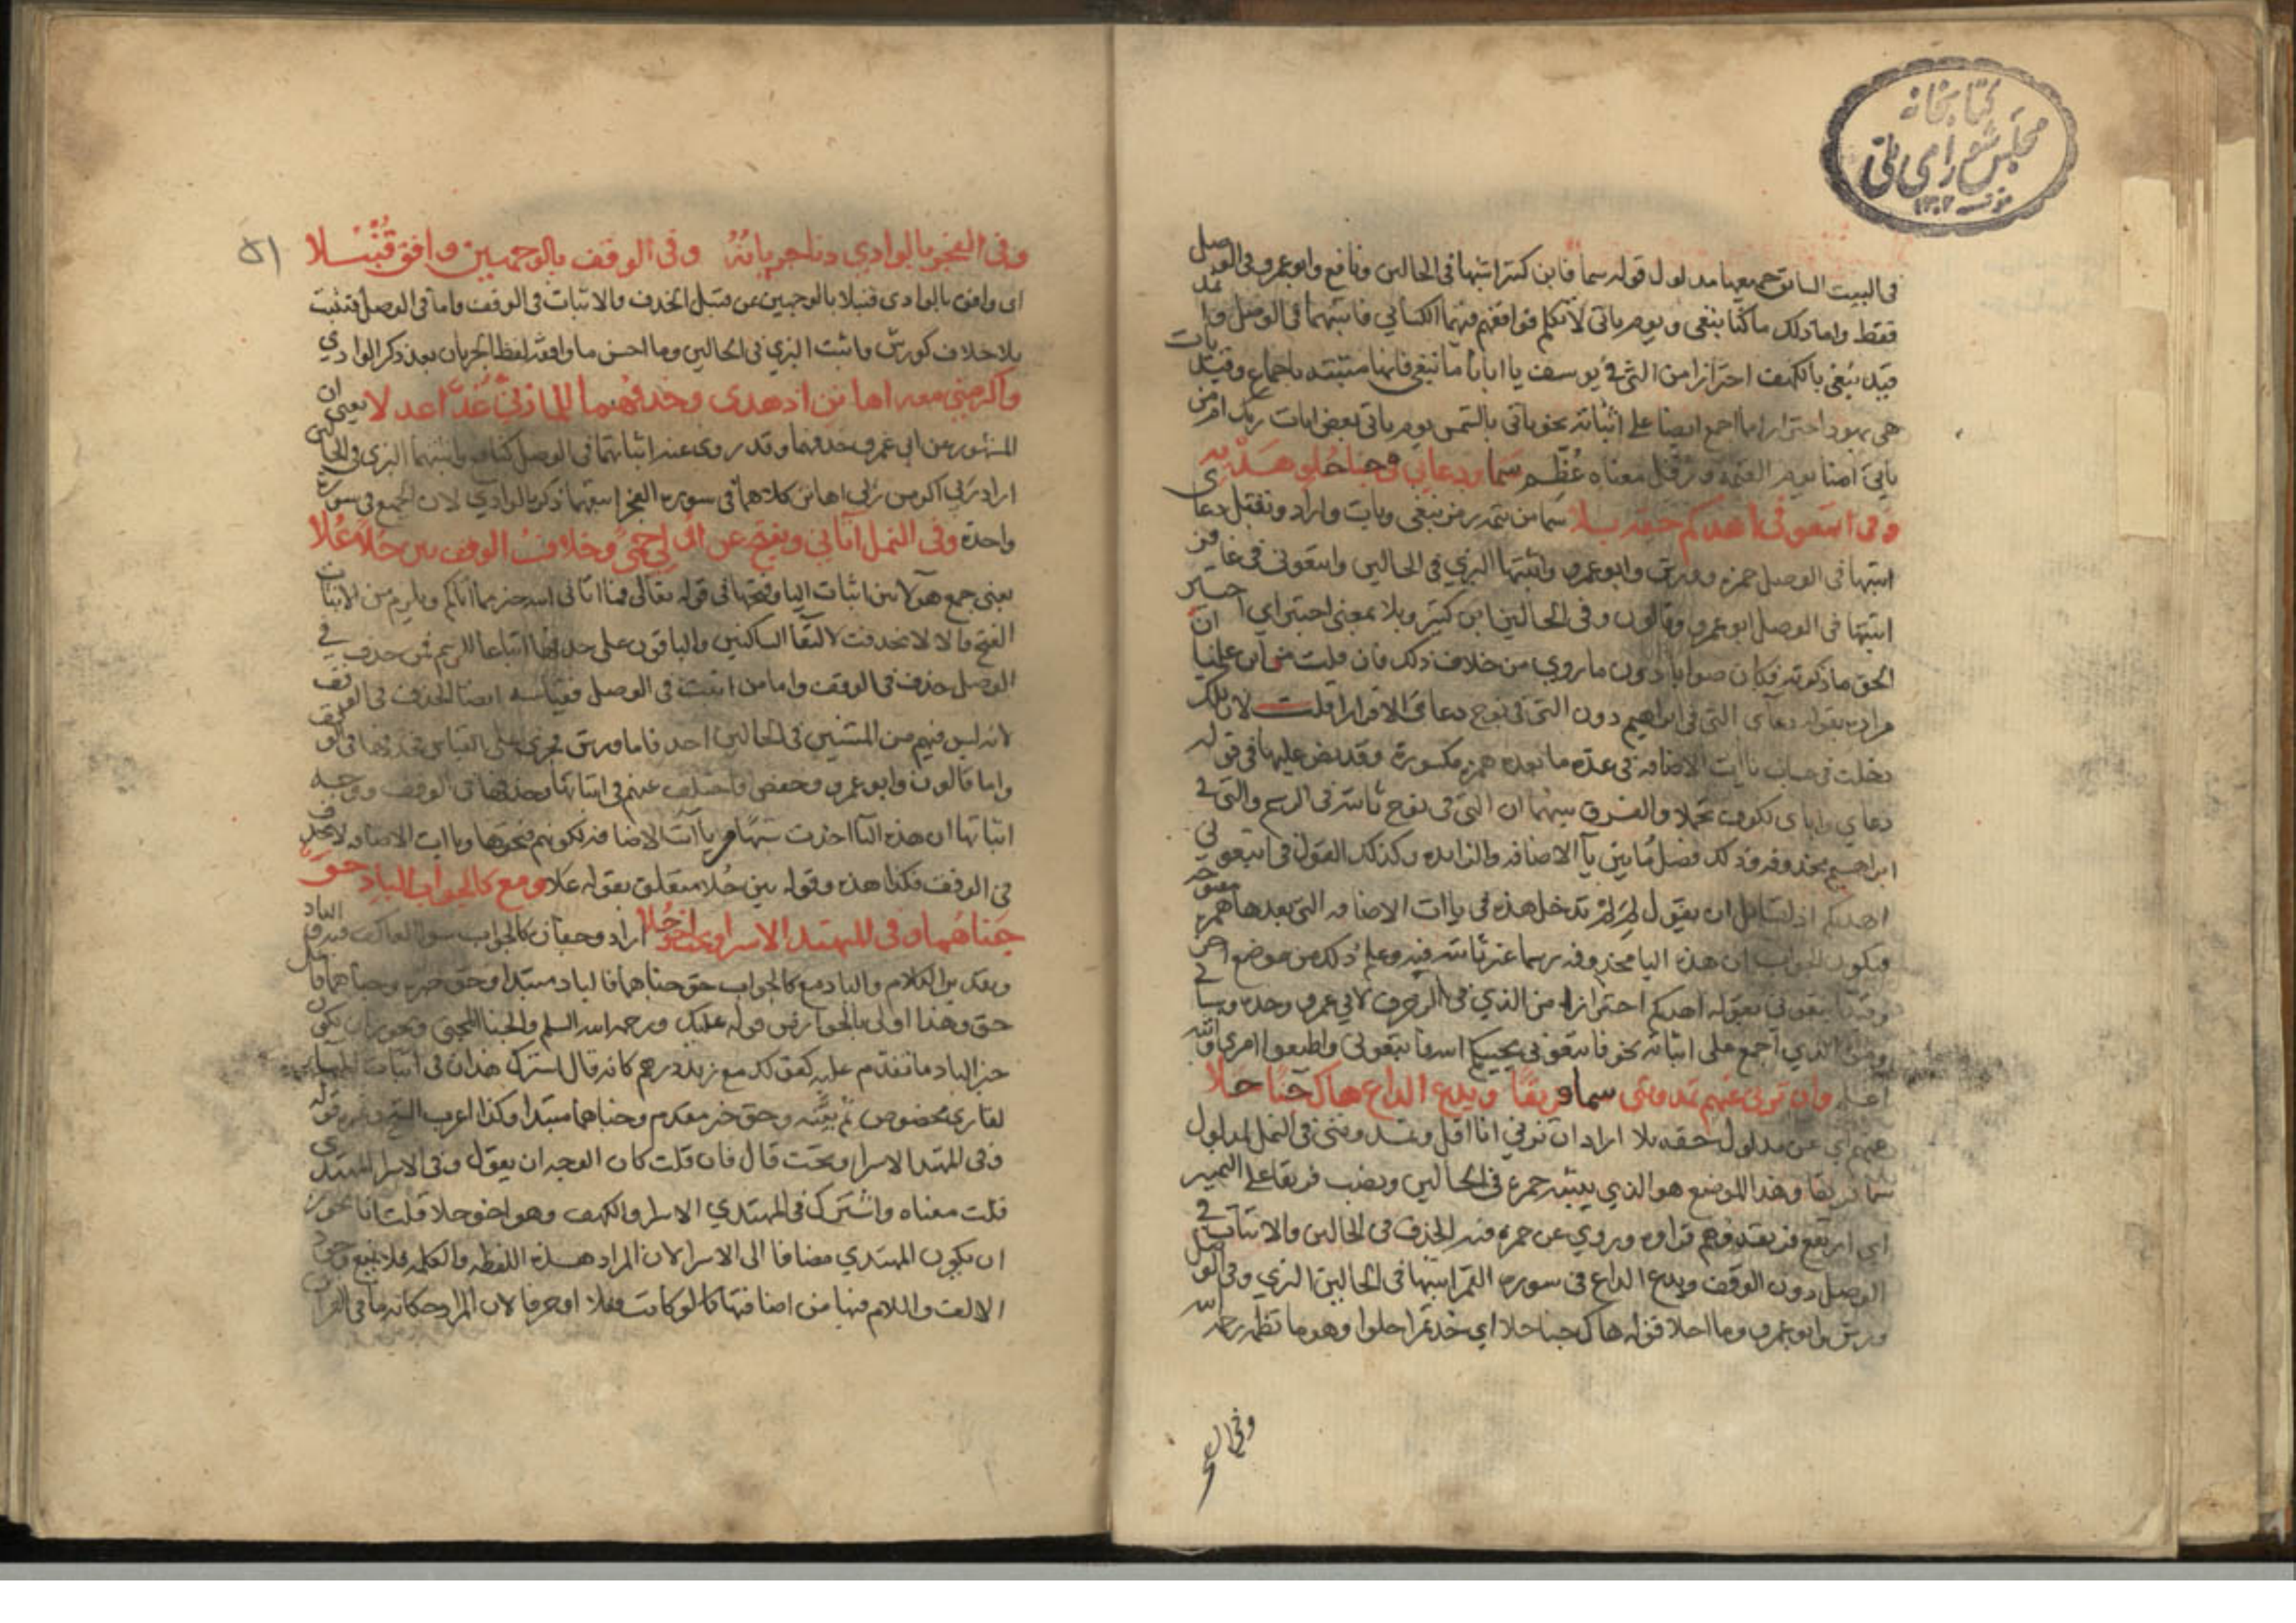 كتابخانه
مجلس شورای ملی
١٣٠٢
فى البيت السابق جميعها مدلول قوله سما فابن كثير اثبتها فى الحالين ونافع وابو عمرو فى الوصل
فقط واما ذلك ما كنا نبغى ويوم يأتى لا تكلم فوافقهم فيهما الكسائي فاثبتهما فى الوصل
قيد نبغى بالكهف احترازا من التي فى يوسف يا ابانا ما نبغى فانها مثبتة باجماع وقيد يات
هى بهود احترازا مما اجمع ايضا على اثباته نحو ياتى بالشمس يوم ياتى بعض ايات ربك
ياتى امنا يوم القيمة ورفل معناه عُظِّم سما ودعاءي فى جنا حلو هديه
وفى اتبعونى اهدكم حقه بلا
اثبتها فى الوصل حمزة وورش وابو عمرو واثبتها البزي فى الحالين واتبعونى فى غافر
اثبتها فى الوصل ابو عمرو وقالون وفى الحالين ابن كثير وبلا بمعنى اختبر اي
الحق ما ذكرته فكان صوابا دون ما روي من خلاف ذلك فان قلت من اين علمنا ان
مراده بقوله دعآى التى فى ابراهيم دون التى فى نوح دعاءى الا فرارا قلت لان تلك
دخلت فى حساب ياات الاضافة فى عدة ما بعده همزة مكسورة وقد نص عليها فى قوله
دعاي واباى لكوف تجملا والفرق بينهما ان التى فى نوح ثابتة فى الرسم والتى فى
ابراهيم محذوفة وذلك فصل ما بين يآ الاضافة والزايدة وكذلك القول فى اتبعونى
اهدكم اذ لقايل ان يقول لم لم تدخل هذه فى ياات الاضافة التى بعدها همزة
فيكون الجواب ان هذه اليا محذوفة رسما غير ثابتة فيه وعلم ذلك من موضع اخر
وقيد اتبعونى بقوله اهدكم احترازا من الذي فى الزخرف لابي عمرو وحده
ومن الذي اجمع على اثباته نحو فاتبعونى يحببكم الله فاتبعونى واطيعوا امري والله
وان ترنى عنهم تمدوننى سما فريقا ويدع الداع هاك جنا حلا
عنهم اي عن مدلول حقه بلا اراد ان ترنى انا اقل وتمدوننى فى النمل لمدلول
سما فريقا وهذا الموضع هو الذي يثبته حمزة فى الحالين ونصب فريقا على التمييز
اي ارتفع فريقه وهم قراوه وروي عن حمزة فيه الحذف فى الحالين والاثبات فى
الوصل دون الوقف ويدع الداع فى سورة القمر اثبتها فى الحالين البزي وفى الوصل
ورش وابو عمرو وما احلا قوله هاك جنا حلا اي خذ ثمرا حلوا وهو ما نظمه رحمه الله
وفى ال
٥١
وفى الفجر بالوادي دنا جريانُهُ وفى الوقف بالوجهين وافق قُنْبُلا
اى وافق بالوادى قنبلا بالوجهين عن قنبل الحذف والاثبات فى الوقف واما فى الوصل فتثبت
بلا خلاف كورش واثبت البزي فى الحالين وما احسن ما وافقه لفظ الجريان بعد ذكر الوادي
واكرمنى معه اهانن اذ هدى وحذفهما للمازنى عُدَّ اعدلا يعنى ان
المشهور عن ابي عمرو حذفهما وقد روى عنه اثباتهما فى الوصل كنافع واثبتهما البزي فى الحالين
اراد ربي اكرمن ربي اهانن كلاهما فى سورة الفجر اتبعهما ذكر بالوادي لان الجميع فى سورة
واحدة وفى النمل آتاني ويفتح عن اولى حمى وخلاف الوقف بين حلا علا
يعنى جمع هولا بين اثبات اليا وفتحها فى قوله تعالى فما اتانى الله خير مما اتاكم ويلزم من الاثبات
الفتح والا لانحذفت لالتقا الساكنين والباقون على حذفها اتباعا للرسم فمن حذف فى
الوصل حذف فى الوقف واما من اثبت فى الوصل فقياسه ايضا الحذف فى الوقف
لانه ليس فيهم من المثبتين فى الحالين احد فاما ورش فجرى على القياس فحذفها فى الوقف
واما قالون وابو عمرو وحفص فاختلف عنهم فى اثباتها وحذفها فى الوقف ووجه
اثباتها ان هذه اليا اخذت شبها من ياآت الاضافة لكونهم فتحوها وياات الاضافة لا تحذف
فى الوقف فكذا هذه وقوله بين حُلا متعلق بقوله علا ومع كالجواب الباد حق
جناهما وفى المهتد الاسرا وتحت اخو حُلا اراد وجفان كالجواب سوا العاكف فيه والباد
حق وهذا اولى بالجواز من قوله عليك ورحمة الله السلم والجنا المجنى ويجوز ان يكون
خبر الباد ما تقدم عليه كقولك مع زيد درهم كانه قال اشترك هذان فى اثبات
لقارئ مخصوص ثم بيّنه وحق خبر مقدم وجناهما مبتدا وكذا اعرب الشيخ وغيره قوله
وفى المهتد الاسرا وتحت قال فان قلت كان الوجه ان يقول وفى الاسرا المهتدى
قلت معناه واشترك فى المهتدي الاسرا والكهف وهو اخو حلا قلت انا يجوز
ان يكون المهتدي مضافا الى الاسرا لان المراد هذه اللفظة والكلمة فلا يمنع وجود
الالف واللام فيها من اضافتها كما لو كانت فعلا او حرفا لان المراد حكاية ما فى القران